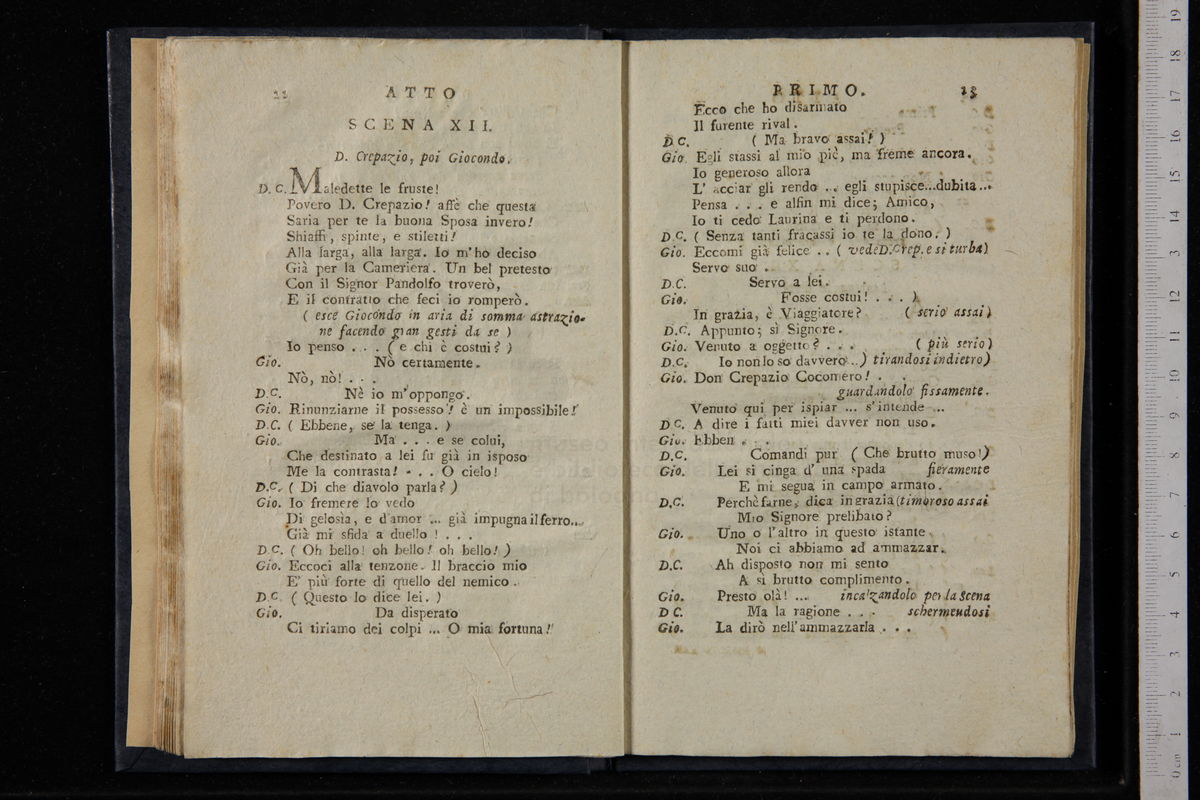 22 ATTO
SCENA XII.
D. Crepazio, poi Giocondo.
D. C. Maledette le fruste!
Povero D. Crepazio! affè che questa
Saria per te la buona Sposa invero!
Shiaffi, spinte, e stiletti!
Alla larga, alla larga. Io m'ho deciso
Già per la Cameriera. Un bel pretesto
Con il Signor Pandolfo troverò,
E il contratto che feci io romperò.
( esce Giocondo in aria di somma astrazio-
ne facendo gran gesti da se )
Io penso . . . ( e chi è costui? )
Gio. Nò certamente.
Nò, nò! . . .
D.C. Nè io m'oppongo.
Gio. Rinunziarne il possesso! è un impossibile!
D.C. ( Ebbene, se la tenga. )
Gio. Ma . . . e se colui,
Che destinato a lei fu già in isposo
Me la contrasta! . . . O cielo!
D.C. ( Di che diavolo parla? )
Gio. Io fremere lo vedo
Di gelosìa, e d'amor ... già impugna il ferro...
Già mi sfida a duello ! . . .
D C. ( Oh bello! oh bello! oh bello! )
Gio. Eccoci alla tenzone. Il braccio mio
E' più forte di quello del nemico.
D.C. ( Questo lo dice lei. )
Gio. Da disperato
Ci tiriamo dei colpi ... O mia fortuna!
PRIMO. 23
Ecco che ho disarmato
Il furente rival.
D C. ( Ma bravo assai! )
Gio. Egli stassi al mio piè, ma freme ancora.
Io generoso allora
L' acciar gli rendo ... egli stupisce...dubita...
Pensa . . . e alfin mi dice; Amico,
Io ti cedo Laurina e ti perdono.
D.C. ( Senza tanti fracassi io te la dono. )
Gio. Eccomi già felice . . ( vede D. Crep. e si turba)
Servo suo .
D.C. Servo a lei.
Gio. Fosse costui! . . . )
In grazia, è Viaggiatore? ( serio assai )
D.C. Appunto; sì Signore.
Gio. Venuto a oggetto? . . . ( più serio )
D.C. Io non lo so davvero...) tirandosi indietro)
Gio. Don Crepazio Cocomero! . .
guardandolo fissamente.
Venuto qui per ispiar ... s'intende ...
D C. A dire i fatti miei davver non uso.
Gio. Ebben . . .
D.C. Comandi pur ( Che brutto muso!)
Gio. Lei si cinga d' una spada fieramente
E mi segua in campo armato.
D.C. Perchè farne, dica in grazia (timoroso assai
Mio Signore prelibato?
Gio. Uno o l'altro in questo istante
Noi ci abbiamo ad ammazzar.
D.C. Ah disposto non mi sento
A sì brutto complimento.
Gio. Presto olà! ... incalzandolo per la Scena
D C. Ma la ragione . . . schermendosi
Gio. La dirò nell'ammazzarla . . .